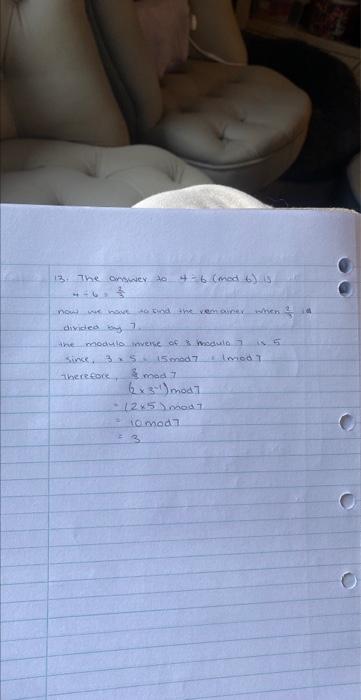 13. The answer to 4 ÷ 6 (mod 6) is
4 ÷ 6 = 2/3
now we have to find the remainer when 2/3 is
divided by 7.
the modulo inverse of 3 modulo 7 is 5
since, 3 x 5 = 15 mod 7 = 1 mod 7
therefore, 2/3 mod 7
(2 x 3⁻¹) mod 7
= (2 x 5) mod 7
= 10 mod 7
= 3